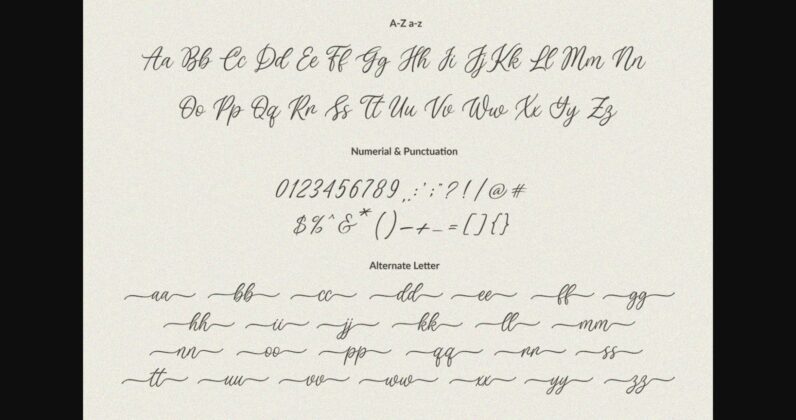 A-Z a-z
Aa Bb Cc Dd Ee Ff Gg Hh Ii Jj Kk Ll Mm Nn
Oo Pp Qq Rr Ss Tt Uu Vv Ww Xx Yy Zz
Numerial & Punctuation
0123456789,.:';:"?!/@#
$%^&*()-+_=[]{}
Alternate Letter
aa bb cc dd ee ff gg
hh ii jj kk ll mm
nn oo pp qq rr ss
tt uu vv ww xx yy zz